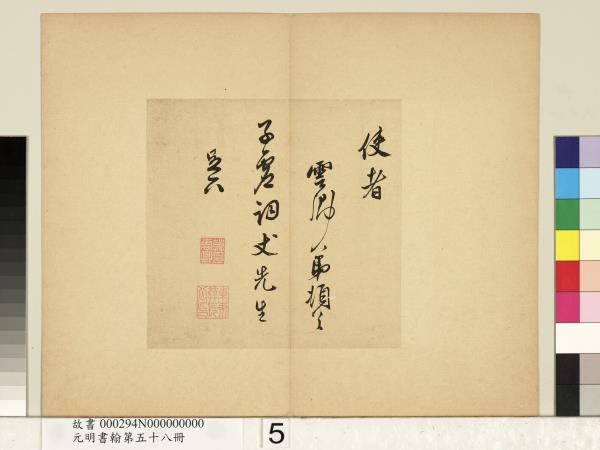 使者
雲卿小弟頓首
子虛詞丈先生
故書 000294N000000000
元明書翰第五十八冊
5